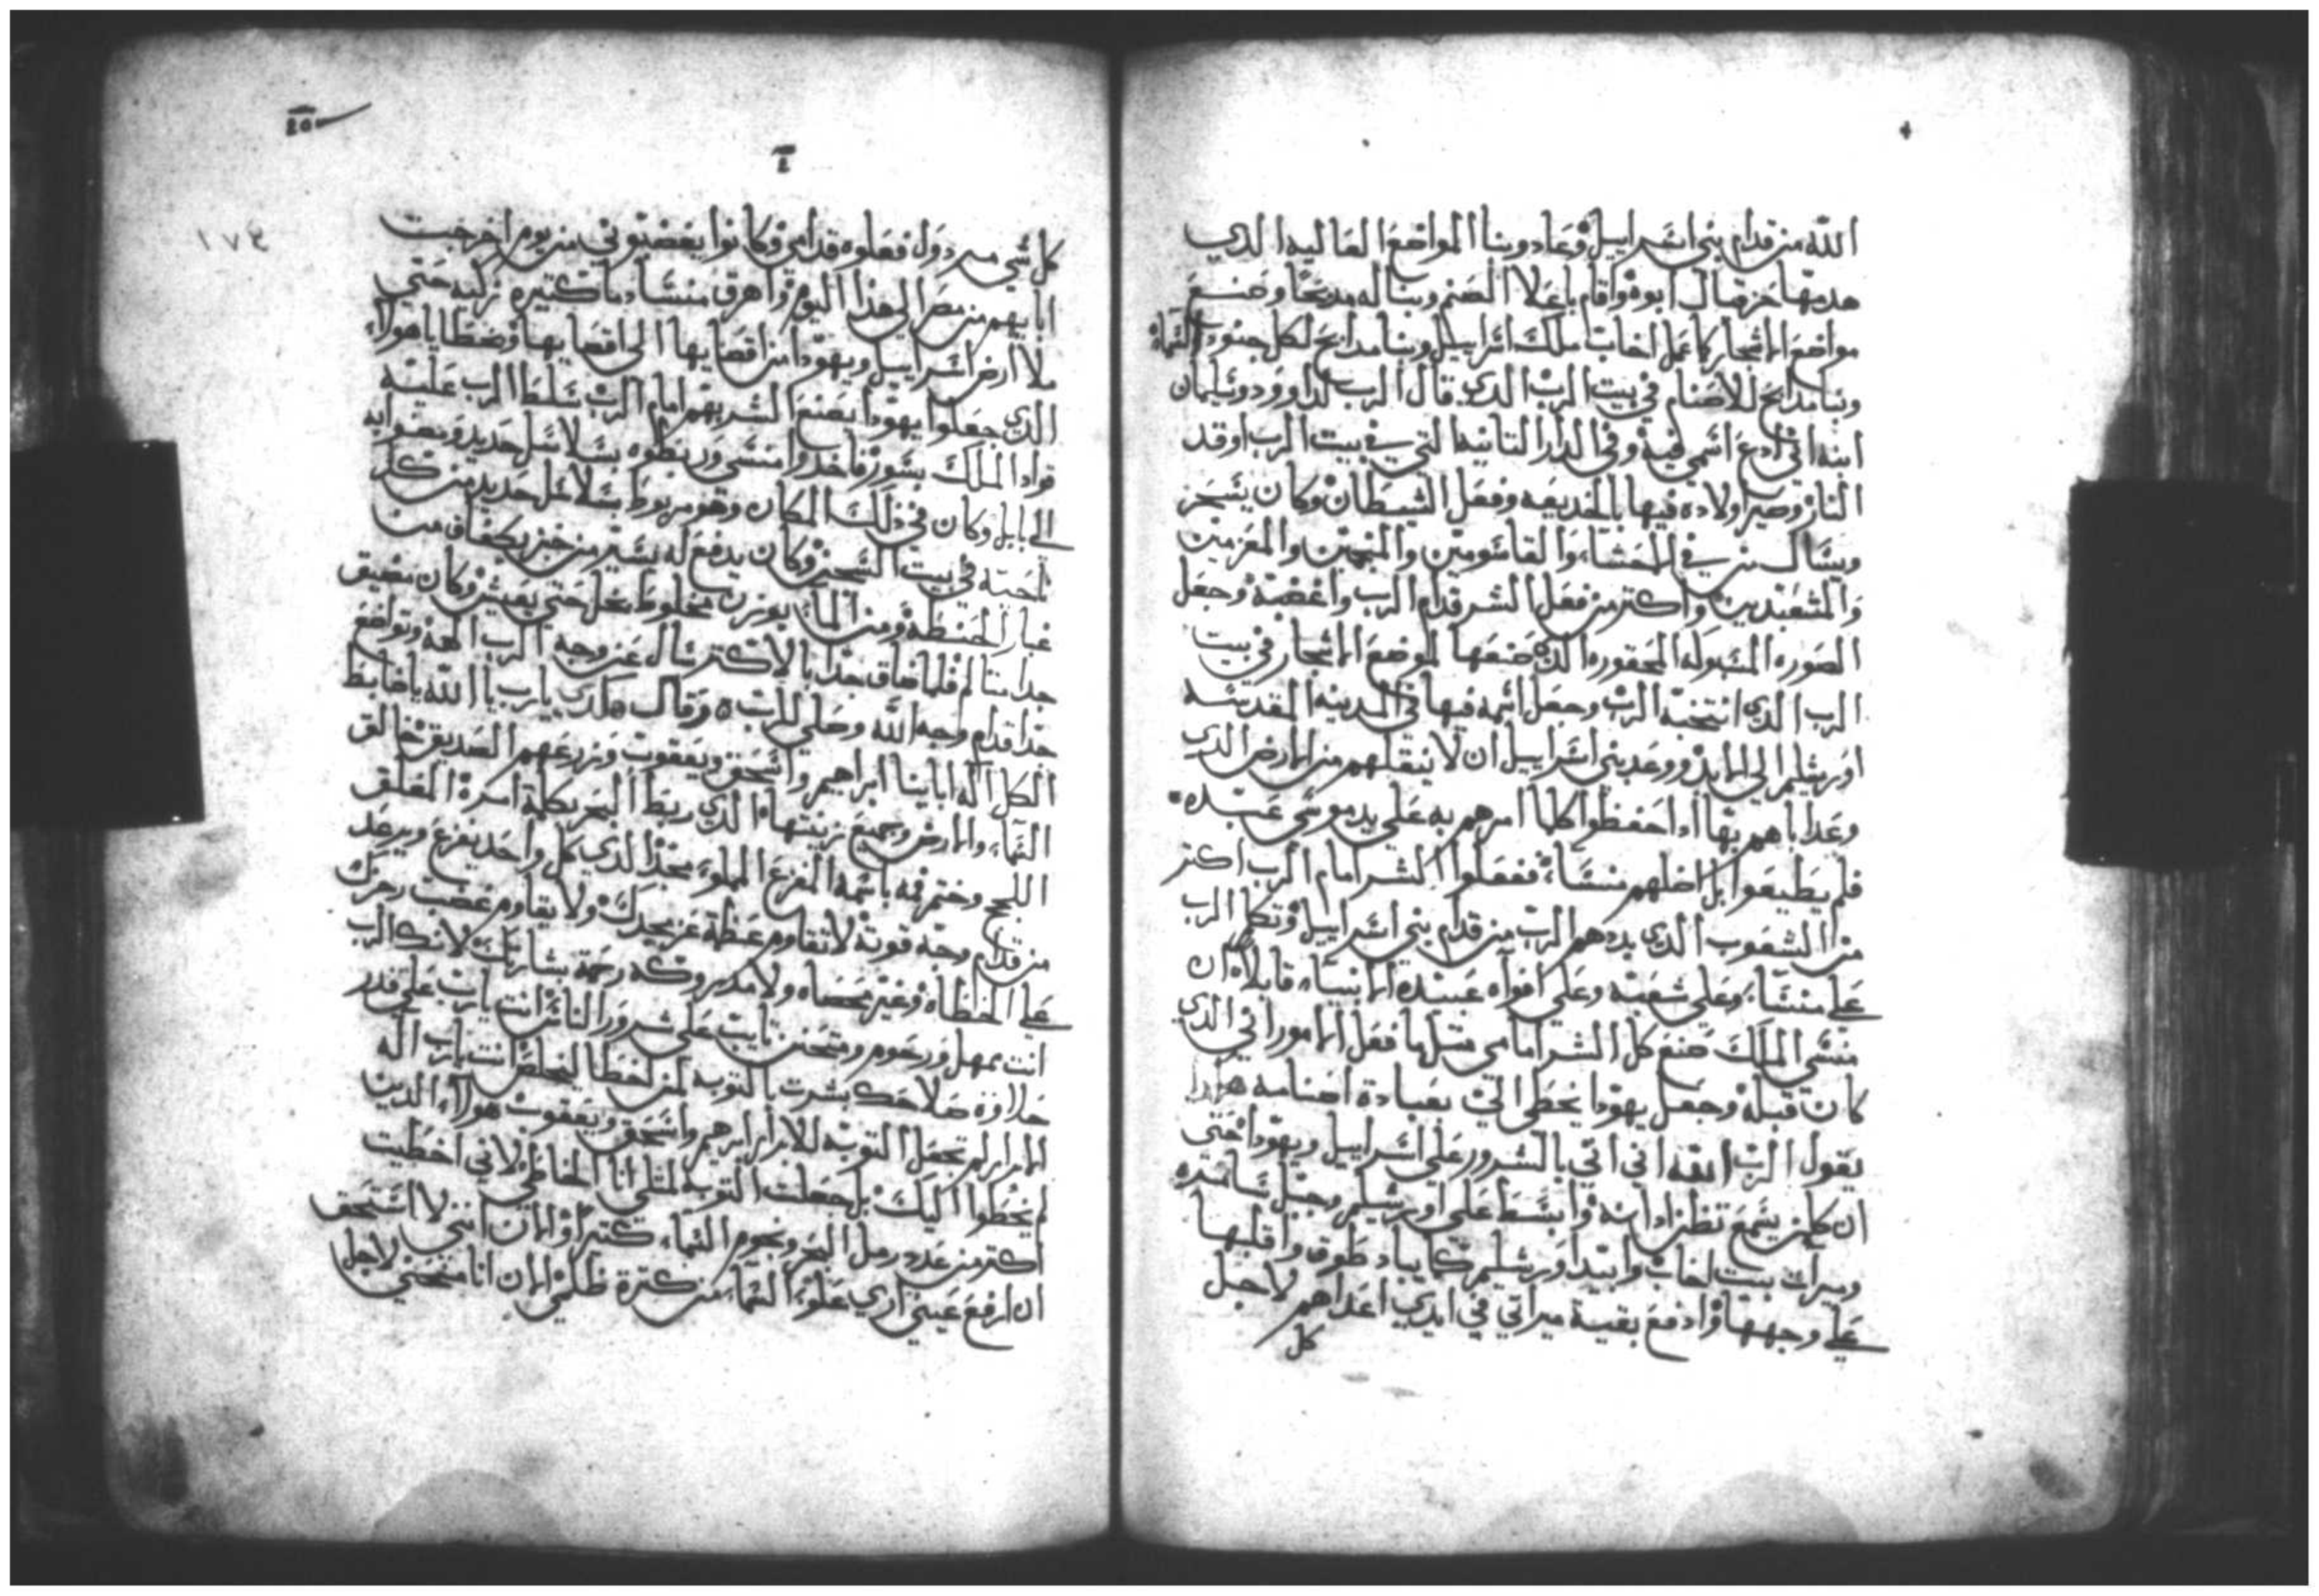 الله من قدام بني اسراييل وعاد وبنا المواضع العاليه الذي
هدمها حزقيال ابوه واقام باعلا الصنم وبنا له مدبحا وصنع
مواضع الاشجار كما عمل اخاب ملك اسراييل وبنا مدابح لكل جنود السماء
وبنا مدابح للاصنام في بيت الرب الدي قال الرب لداوود وسليمان
ابنه اني ادع اسمي فيه وفي الدار التانيه التي في بيت الرب اوقد
النار وصير اولاده فيها بالخديعه وفعل الشيطان وكان يسحر
ويسال من في المحشا والقاسومين والمنجمين والمعزمين
والمشعبدين واكتر من فعل الشر قدام الرب واغضبه وجعل
الصوره المسبوكه المحقوره الدي صنعها لموضع الاشجار في بيت
الرب الدي انتخبه الرب وجعل اسمه فيها في المدينه المقدسه
اورشليم الي الابد ووعد بني اسراييل ان لا ينقلهم من الارض الدي
وعد اباهم بها ادا حفظوا كلما امرهم به علي يد موسي عبده
فلم يطيعوا بل اضلهم منسا ففعلوا الشر امام الرب اكتر
من الشعوب الدي بددهم الرب من قدام بني اسراييل وتكلم الرب
علي منسا وعلي شعبه وعلي افواه عبيده الانبياء قايلا ان
منسي الملك صنع كل الشر امامي متلما فعل الاموراني الدي
كان قبله وجعل يهودا يخطي الي بعبادة اصنامه هكدا
يقول الرب الله اني اتي بالشرور علي اسراييل ويهودا حتي
ان كلمن يسمع تطن ادانه وابسط علي اورشليم وحبل سامره
وميراث بيت اخاب وابيد اورشليم كما يباد طوف واقلبها
علي وجهها وادفع بقية ميراتي في ايدي اعداهم لاجل
كل
١٧٤
كل شي دول فعلوه قدامي وكانوا يغضبوني من يوم اخرجت
اباهم من مصر الي هذا اليوم واهرق منسا دما كتيره زكيه حتي
ملا ارض اسراييل ويهودا من اقصايها الي اقصايها وخطايا هولاء
الدي جعلوا يهودا يصنع الشر بهم امام الرب سلط الرب عليه
قواد الملك بسور فاخدوا منسي وربطوه بسلاسل حديد ومضوا به
الي بابل وكان في ذلك المكان وهو مربوط بسلاسل حديد من كل
ناحية في بيت السجن وكان يدفع له يسير من خبز بكفاف من
غبار الحنطه ومن الماء بوزن مخلوط بخل حتي يعيش وكان مضيق
جدا متالم فلما ضاق جدا بالاكتر سال عن وجه الرب الهه وتواضع
جدا قدام وجه الله وصلي للرب وقال هكدي يارب يا الله يا ضابط
الكل اله اباينا ابراهيم واسحق ويعقوب وزرعهم الصديق خالق
السماء والارض وجميع زينتها الدي ربط البحر بكلمة امره المغلق
اللجج وختم فمه باسمه المفزع المملوء مجدا الدي كل واحد يفزع ويرعد
من قدام وجه قوته لا تقاوم عظمة عز مجدك ولا يقاوم غضب رجزك
علي الخطاه وغير محصاه ولا مدروكه رحمة بشارتك لانك الرب
انت بمهل ورحوم ومتحنن تايب علي شرور الناس انت يارب علي قدر
حلاوة صلاحك بشرت بالتوبه لمن اخطا ليخلص انت يارب اله
الابرار لم تجعل التوبه للابرار ابراهيم واسحق ويعقوب هولاء الدين
لم يخطوا اليك بل جعلت التوبه لمتلي انا الخاطي لاني اخطيت
اكتر من عدد رمل البحر ونجوم السماء كترا والان انني لا استحق
ان ارفع عيني اري علو السماء من كترة ظلمي الان انا منحني لاجل